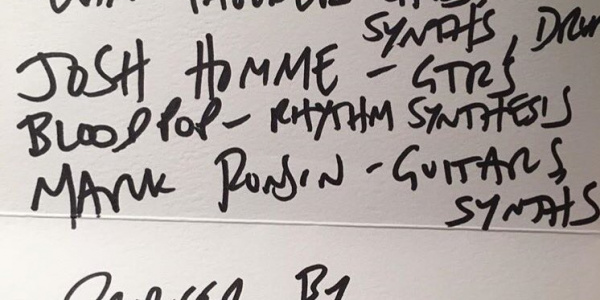 SYNTHS, DRUM
JOSH HOMME - GTRS
BLOODPOP - RHYTHM SYNTHESIS
MARK RONSON - GUITARS
SYNTHS
BY